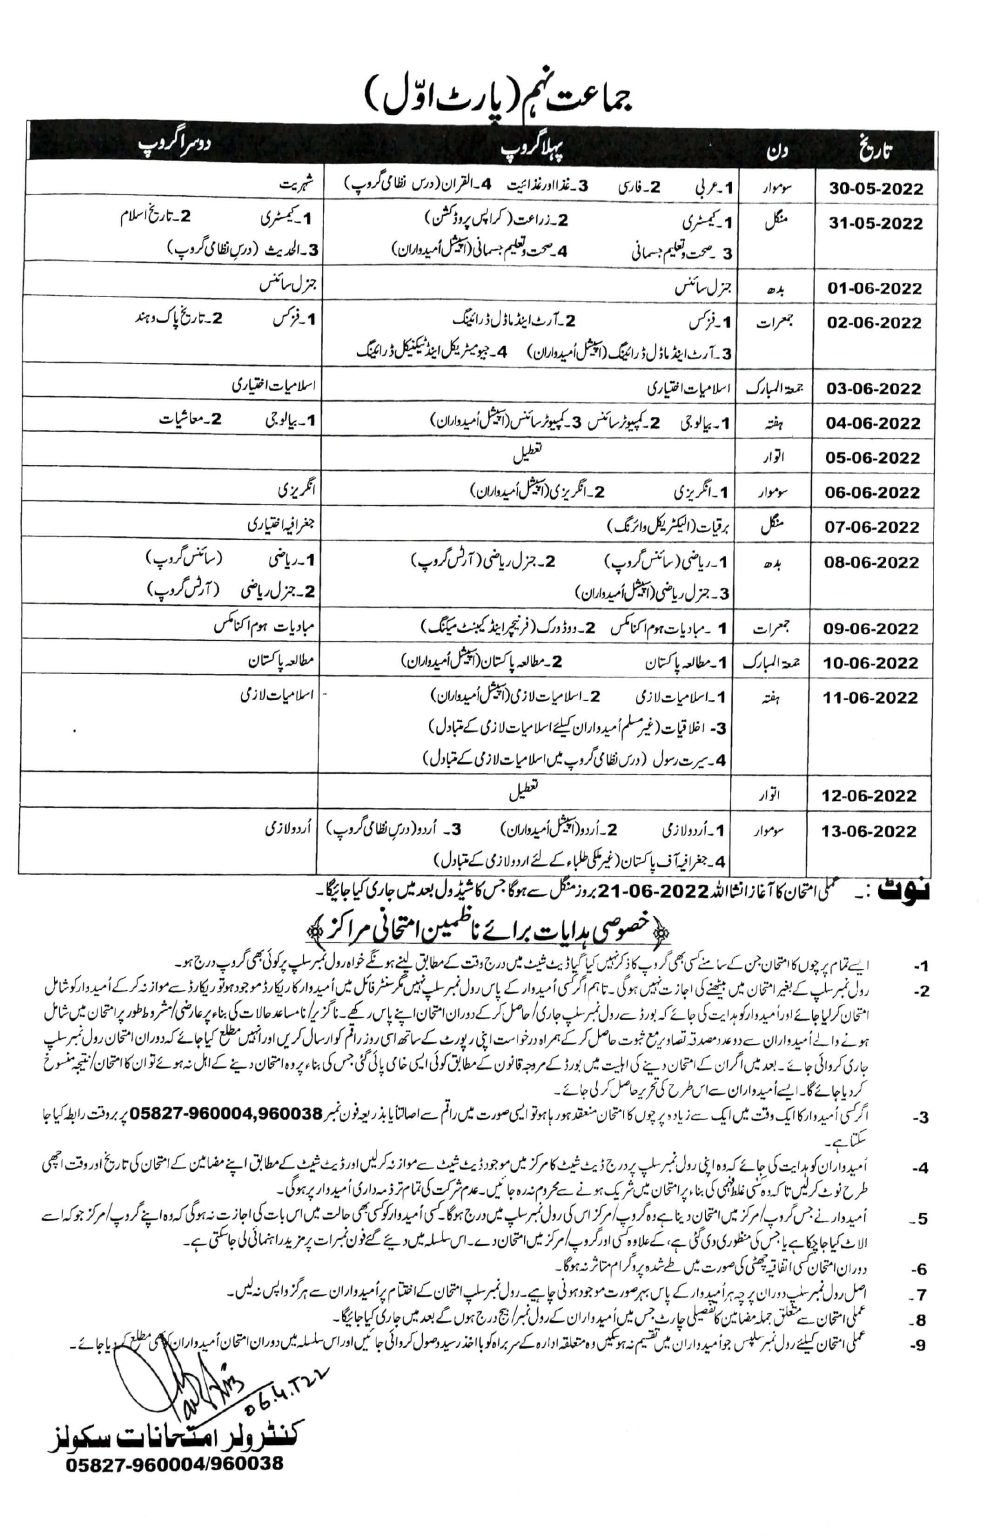 جماعت نہم (پارٹ اوّل)
تاریخ دن پہلا گروپ دوسرا گروپ
30-05-2022 سوموار 1۔عربی 2۔فارسی 3۔غذا اور غذائیت 4۔القران (درس نظامی گروپ) شہریت
31-05-2022 منگل 1۔کیمسٹری 2۔زراعت (کراپس پروڈکشن) 1۔کیمسٹری 2۔تاریخ اسلام
3۔صحت و تعلیم جسمانی 4۔صحت و تعلیم جسمانی (اسپیشل اُمیدواران) 3۔الحدیث (درس نظامی گروپ)
01-06-2022 بدھ جنرل سائنس جنرل سائنس
02-06-2022 جمعرات 1۔فزکس 2۔آرٹ اینڈ ماڈل ڈرائینگ 1۔فزکس 2۔تاریخ پاک و ہند
3۔آرٹ اینڈ ماڈل ڈرائینگ (اسپیشل اُمیدواران) 4۔جیومیٹریکل اینڈ ٹیکنیکل ڈرائینگ
03-06-2022 جمعۃ المبارک اسلامیات اختیاری اسلامیات اختیاری
04-06-2022 ہفتہ 1۔بیالوجی 2۔کمپیوٹر سائنس 3۔کمپیوٹر سائنس (اسپیشل اُمیدواران) 1۔بیالوجی 2۔معاشیات
05-06-2022 اتوار تعطیل
06-06-2022 سوموار 1۔انگریزی 2۔انگریزی (اسپیشل اُمیدواران) انگریزی
07-06-2022 منگل برقیات (الیکٹریکل وائرنگ) جغرافیہ اختیاری
08-06-2022 بدھ 1۔ریاضی (سائنس گروپ) 2۔جنرل ریاضی (آرٹس گروپ) 1۔ریاضی (سائنس گروپ)
3۔جنرل ریاضی (اسپیشل اُمیدواران) 2۔جنرل ریاضی (آرٹس گروپ)
09-06-2022 جمعرات 1۔مبادیات ہوم اکنامکس 2۔ووڈ ورک (فرنیچر اینڈ کیبنٹ میکنگ) مبادیات ہوم اکنامکس
10-06-2022 جمعۃ المبارک 1۔مطالعہ پاکستان 2۔مطالعہ پاکستان (اسپیشل اُمیدواران) مطالعہ پاکستان
11-06-2022 ہفتہ 1۔اسلامیات لازمی 2۔اسلامیات لازمی (اسپیشل اُمیدواران) اسلامیات لازمی
3- اخلاقیات (غیر مسلم اُمیدواران کیلئے اسلامیات لازمی کے متبادل)
4۔سیرت رسول (درس نظامی گروپ میں اسلامیات لازمی کے متبادل)
12-06-2022 اتوار تعطیل
13-06-2022 سوموار 1۔اُردو لازمی 2۔اُردو (اسپیشل اُمیدواران) 3۔ اُردو (درس نظامی گروپ) اُردو لازمی
4۔جغرافیہ آف پاکستان (غیر ملکی طلباء کے لئے اردو لازمی کے متبادل)
نوٹ :۔ عملی امتحان کا آغاز انشااللہ 21-06-2022 بروز منگل سے ہوگا جس کا شیڈول بعد میں جاری کیا جائیگا۔
خصوصی ہدایات برائے ناظمین امتحانی مراکز
1- ایسے تمام پرچوں کا امتحان جن کے سامنے کسی بھی گروپ کا ذکر نہیں کیا گیا ڈیٹ شیٹ میں درج وقت کے مطابق لینے ہونگے خواہ رول نمبر سلپ پر کوئی بھی گروپ درج ہو۔
2- رول نمبر سلپ کے بغیر امتحان میں بیٹھنے کی اجازت نہیں ہوگی۔ تاہم اگر کسی اُمیدوار کے پاس رول نمبر سلپ نہیں مگر سنٹر فائل میں اُمیدوار کا ریکارڈ موجود ہو تو ریکارڈ سے موازنہ کر کے اُمیدوار کو شامل
امتحان کر لیا جائے اور اُمیدوار کو ہدایت کی جائے کہ بورڈ سے رول نمبر سلپ جاری/حاصل کر کے دوران امتحان اپنے پاس رکھے۔ ناگزیر/نامساعد حالات کی بناء پر عارضی/مشروط طور پر امتحان میں شامل
ہونے والے اُمیدواران سے دو عدد مصدقہ تصاویر مع ثبوت حاصل کر کے ہمراہ درخواست اپنی رپورٹ کے ساتھ اسی روز راقم کو ارسال کریں اور انہیں مطلع کیا جائے کہ دوران امتحان رول نمبر سلپ
جاری کروائی جائے۔ بعد میں اگر ان کے امتحان دینے کی اہلیت میں بورڈ کے مروجہ قانون کے مطابق کوئی ایسی خامی پائی گئی جس کی بناء پر وہ امتحان دینے کے اہل نہ ہوئے تو ان کا امتحان/نتیجہ منسوخ
کر دیا جائے گا۔ ایسے اُمیدواران سے اس طرح کی تحریر حاصل کر لی جائے۔
3- اگر کسی اُمیدوار کا ایک وقت میں ایک سے زیادہ پرچوں کا امتحان منعقد ہو رہا ہو تو ایسی صورت میں راقم سے اصالتاً یا بذریعہ فون نمبر 05827-960004,960038 پر بروقت رابطہ کیا جا
سکتا ہے۔
4- اُمیدواران کو ہدایت کی جائے کہ وہ اپنی رول نمبر سلپ پر درج ڈیٹ شیٹ کا مرکز میں موجود ڈیٹ شیٹ سے موازنہ کر لیں اور ڈیٹ شیٹ کے مطابق اپنے مضامین کے امتحان کی تاریخ اور وقت اچھی
طرح نوٹ کر لیں تاکہ وہ کسی غلط فہمی کی بناء پر امتحان میں شریک ہونے سے محروم نہ رہ جائیں۔ عدم شرکت کی تمام تر ذمہ داری اُمیدوار پر ہوگی۔
5۔ اُمیدوار نے جس گروپ/مرکز میں امتحان دینا ہے وہ گروپ/مرکز اس کی رول نمبر سلپ میں درج ہوگا۔ کسی اُمیدوار کو کسی بھی حالت میں اس بات کی اجازت نہ ہوگی کہ وہ اپنے گروپ/مرکز جو کہ اسے
الاٹ کیا جا چکا ہے یا جس کی منظوری دی گئی ہے، کے علاوہ کسی اور گروپ/مرکز میں امتحان دے۔ اس سلسلہ میں دیئے گئے فون نمبرات پر مزید راہنمائی لی جا سکتی ہے۔
6- دوران امتحان کسی اتفاقیہ چھٹی کی صورت میں طے شدہ پروگرام متاثر نہ ہوگا۔
7۔ اصل رول نمبر سلپ دوران پرچہ ہر اُمیدوار کے پاس بہر صورت موجود ہونی چاہیے۔ رول نمبر سلپ امتحان کے اختتام پر اُمیدواران سے ہرگز واپس نہ لیں۔
8۔ عملی امتحان سے متعلق جملہ مضامین کا تفصیلی چارٹ جس میں اُمیدواران کے رول نمبر/بیچ درج ہوں گے بعد میں جاری کیا جائیگا۔
9- عملی امتحان کیلئے رول نمبر سلپس جو اُمیدواران میں تقسیم نہ ہو سکیں وہ متعلقہ ادارہ کے سربراہ کو باخذ رسید وصول کروائی جائیں اور اس سلسلہ میں دوران امتحان اُمیدواران کو بھی مطلع کر دیا جائے۔
کنٹرولر امتحانات سکولز
05827-960004/960038